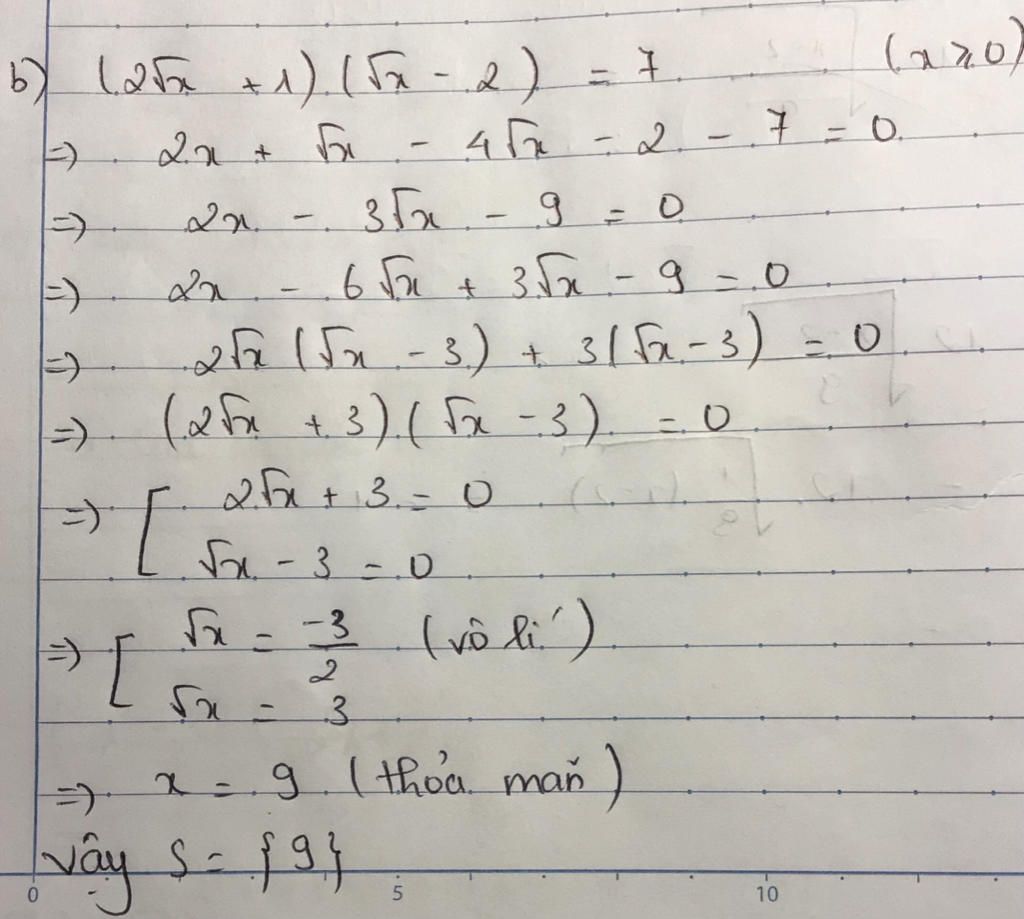 b) (2√x + 1)(√x - 2) = 7 (x ⩾ 0)
=> 2x + √x - 4√x - 2 - 7 = 0
=> 2x - 3√x - 9 = 0
=> 2x - 6√x + 3√x - 9 = 0
=> 2√x (√x - 3) + 3(√x - 3) = 0
=> (2√x + 3)(√x - 3) = 0
=> [ 2√x + 3 = 0
√x - 3 = 0
=> [ √x = -3/2 (vô lí)
√x = 3
=> x = 9 (thỏa mãn)
vậy S = {9}
0 5 10